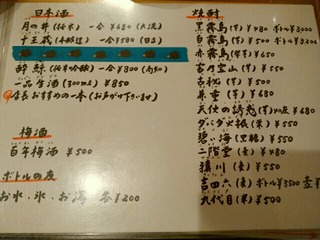 日本酒
月の井(純米) 一合¥680(大洗)
十王蔵(本醸造) 一合¥580(日立)
酔鯨(純米吟醸) 一合¥800(高知)
一品生酒(300ml) ¥850
店長おすすめの一本(お声がけ下さいませ)
梅酒
百年梅酒 ¥500
ボトルの友
お水、氷、お湯 各¥200
焼酎
黒霧島(芋)¥480 ボトル¥3000
白霧島(芋)¥500 ボトル¥3200
赤霧島(芋)¥650
吉乃宝山(芋)¥550
古秘(芋)¥500
兼重(芋)¥680
天使の誘惑(芋)40度¥680
ダバダ火振(栗)¥550
碧い海(黒糖)¥550
二階堂(麦)¥480
猿川(麦)¥550
吉四六(麦)ボトル¥3500
九代目(米)¥500